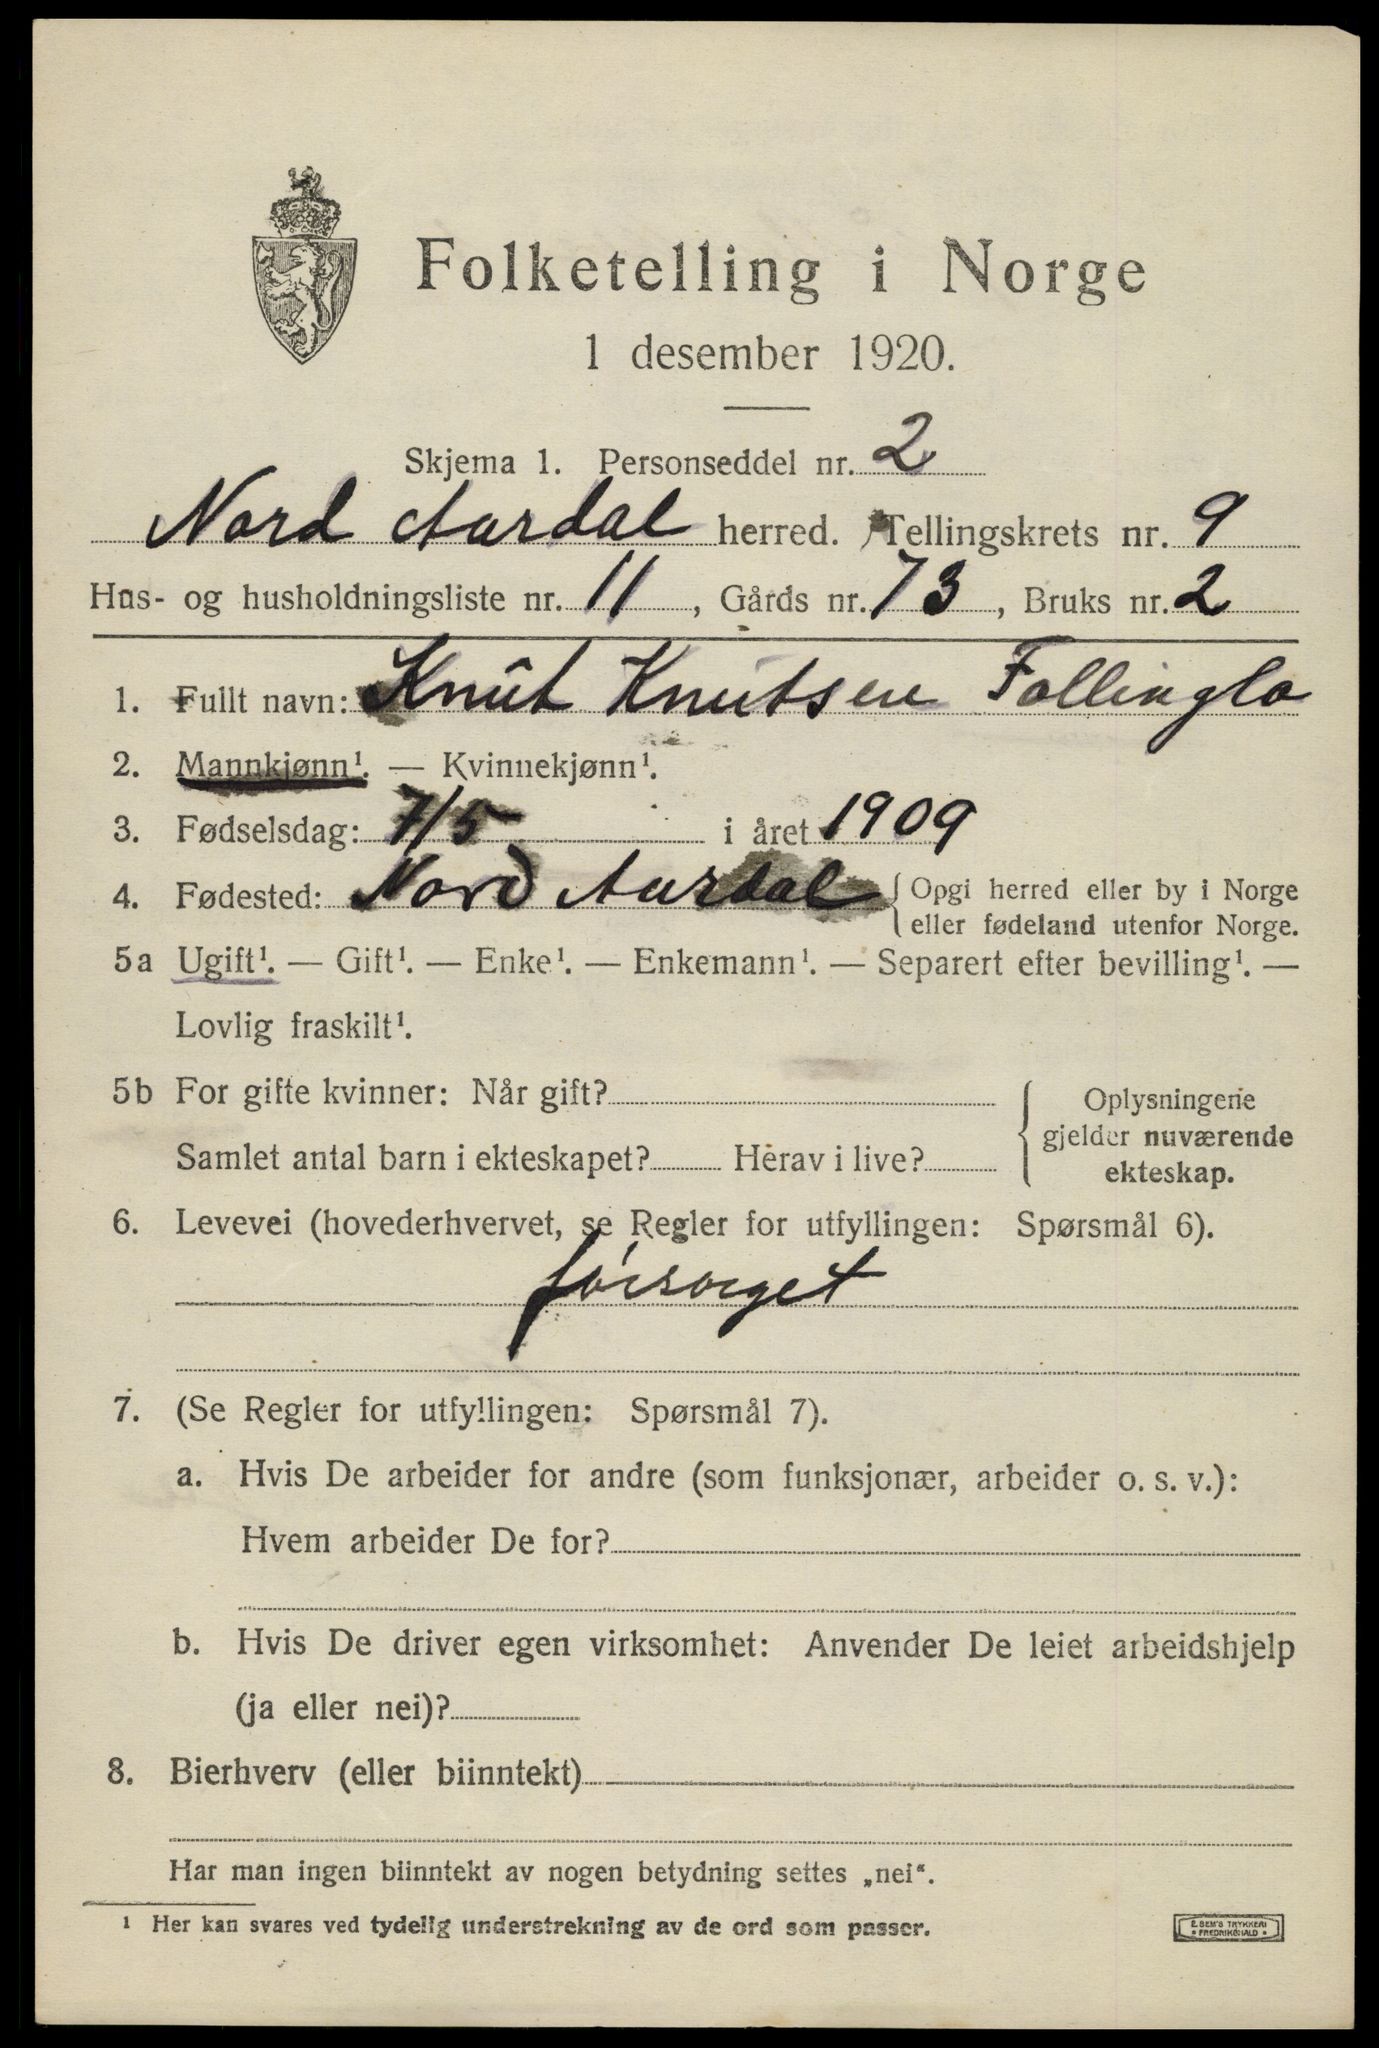 Folketelling i Norge
1 desember 1920.
Skjema 1. Personseddel nr. 2
Nord Aurdal herred. Tellingskrets nr. 9
Hus- og husholdningsliste nr. 11, Gårds nr. 73, Bruks nr. 2
1. Fullt navn: Knut Knutsen Follinglo
2. Mannkjønn¹. — Kvinnekjønn¹.
3. Fødselsdag: 7/5 i året 1909
4. Fødested: Nord Aurdal { Opgi herred eller by i Norge
eller fødeland utenfor Norge.
5a Ugift¹. — Gift¹. — Enke¹. — Enkemann¹. — Separert efter bevilling¹. —
Lovlig fraskilt¹.
5b For gifte kvinner: Når gift?
Samlet antal barn i ekteskapet? Herav i live?
{ Oplysningene
gjelder nuværende
ekteskap.
6. Levevei (hovederhvervet, se Regler for utfyllingen: Spørsmål 6).
forsørget
7. (Se Regler for utfyllingen: Spørsmål 7).
a. Hvis De arbeider for andre (som funksjonær, arbeider o. s. v.):
Hvem arbeider De for?
b. Hvis De driver egen virksomhet: Anvender De leiet arbeidshjelp
(ja eller nei)?
8. Bierhverv (eller biinntekt)
Har man ingen biinntekt av nogen betydning settes „nei“.
¹ Her kan svares ved tydelig understrekning av de ord som passer.
E. SEM'S TRYKKERI
• FREDRIKSHALD •